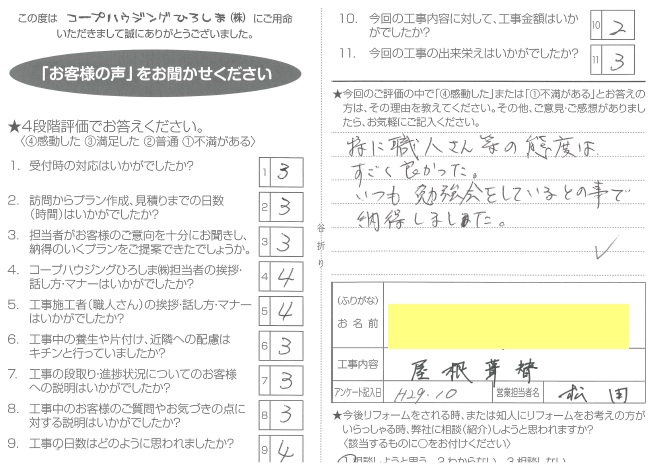 この度は コープハウジングひろしま(株) にご用命
いただきまして誠にありがとうございました。
「お客様の声」をお聞かせください
★4段階評価でお答えください。
〈④感動した ③満足した ②普通 ①不満がある〉
1. 受付時の対応はいかがでしたか? 1 3
2. 訪問からプラン作成、見積りまでの日数
(時間)はいかがでしたか? 2 3
3. 担当者がお客様のご意向を十分にお聞きし、
納得のいくプランをご提案できたでしょうか。 3 3
4. コープハウジングひろしま㈱担当者の挨拶・
話し方・マナーはいかがでしたか? 4 4
5. 工事施工者(職人さん)の挨拶・話し方・マナー
はいかがでしたか? 5 4
6. 工事中の養生や片付け、近隣への配慮は
キチンと行っていましたか? 6 3
7. 工事の段取り・進捗状況についてのお客様
への説明はいかがでしたか? 7 3
8. 工事中のお客様のご質問やお気づきの点に
対する説明はいかがでしたか? 8 3
9. 工事の日数はどのように思われましたか? 9 4
谷折り
10. 今回の工事内容に対して、工事金額はいか
がでしたか? 10 2
11. 今回の工事の出来栄えはいかがでしたか? 11 3
★今回のご評価の中で「④感動した」または「①不満がある」とお答えの
方は、その理由を教えてください。その他、ご意見・ご感想がありまし
たら、お気軽にご記入ください。
特に職人さん等の態度は
すごく良かった。
いつも勉強会をしているとの事で
納得しました。
(ふりがな)
お名前
工事内容 屋根葺替
アンケート記入日 H29.10 営業担当者名 松田
★今後リフォームをされる時、または知人にリフォームをお考えの方が
いらっしゃる時、弊社に相談(紹介)しようと思われますか?
〈該当するものに○をお付けください〉
1.相談しようと思う 2.わからない 3.相談しない